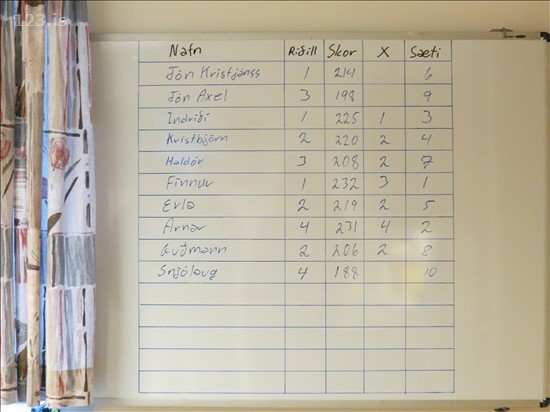 123.is
Nafn Riffill Skor X Sæti
Jón Kristjánss 1 214 6
Jón Axel 3 198 9
Indriði 1 225 1 3
Kristbjörn 2 220 2 4
Haldór 3 208 2 7
Finnur 1 232 3 1
Erla 2 219 2 5
Arnar 4 231 4 2
Guðmann 2 206 2 8
Snjólaug 4 188 10